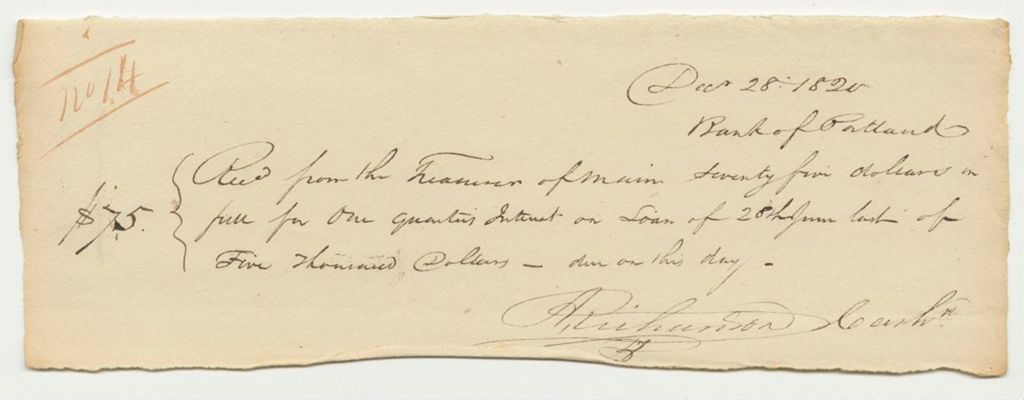 No 14
Decr 28. 1820
Bank of Portland
Recd from the Treasurer of Maine Seventy five dollars in
$75. full for One quarters Interest on Loan of 28th June last of
Five Thousand Dollars – due on this day –
A Richardson Cashr